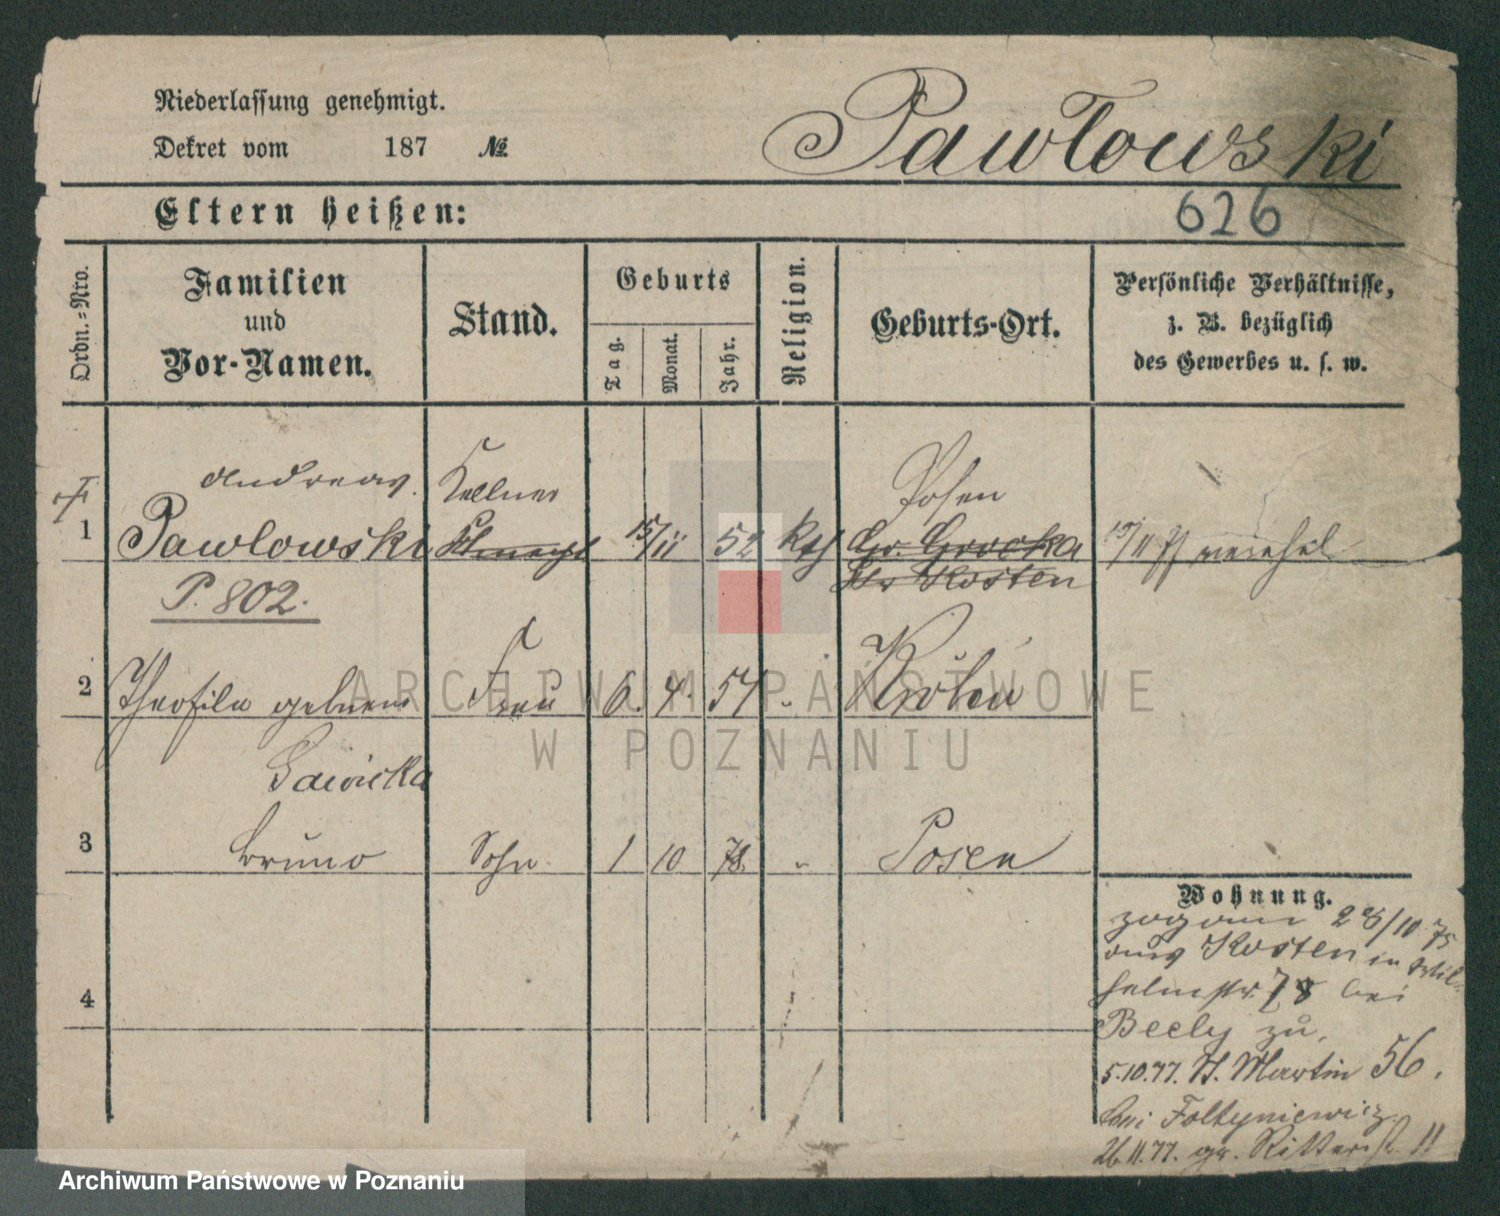 Niederlassung genehmigt.
Dekret vom 187 №
Pawlowski
626
Eltern heißen:
Ordn.-Nro.
Familien
und
Vor-Namen.
Stand.
Geburts
Tag.
Monat.
Jahr.
Religion.
Geburts-Ort.
Persönliche Verhältnisse,
z. B. bezüglich
des Gewerbes u. s. w.
Andreas Kellner Posen
1 Pawlowski 15/11 52 kth Gr. 15/11
Kosten
P. 802.
2 Theofila geborene Frau 6. 4. 54 "
3 Bruno Sohn 1 10 78. " Posen
4
Wohnung.
zog am 28/10 75
aus Kosten in Wil-
helmstr. 18 bei
Beely zu.
5.10.77. St. Martin 56.
bei Foltyniewicz
26.11.77. gr. Ritterst 11
ARCHIWUM PAŃSTWOWE
W POZNANIU
Archiwum Państwowe w Poznaniu